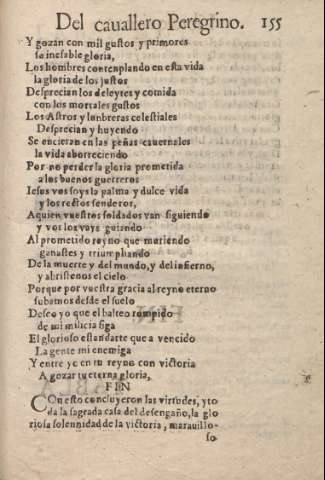 Del cauallero Peregrino. 155
Y gozàn con mil gustos y primores
su inefable gloria,
Los hombres contemplando en esta vida
la gloria de los justos
Desprecian los deleytes y comida
con los mortales gustos
Los Astros y lunbreras celestiales
Desprecian y huyendo
Se encierran en las peñas cauernales
la vida aborreciendo
Por no perder la gloria prometida
a los buenos guerreros
Iesus vos soys la palma y dulce vida
y los rectos senderos,
A quien vuestros soldados van siguiendo
y vos los voys guiando
Al prometido reyno que muriendo
ganastes y triumphando
De la muerte y del mundo, y del infierno,
y abristenos el cielo
Porque por vuestra gracia al reyno eterno
subamos desde el suelo
Deseo yo que el balteo rompido
de mi milicia siga
El glorioso estandarte que a vencido
La gente mi enemiga
Y entre yo en tu reyno con victoria
A gozar tu eterna gloria,
FIN
COn esto concluyeron las virtudes, y to
da la sagrada casa del desengaño, la glo
riosa solennidad de la victoria, marauillo-
so